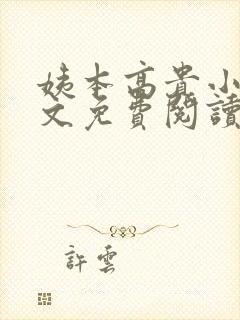 姨本高貴小
文免費閱讀
許雲